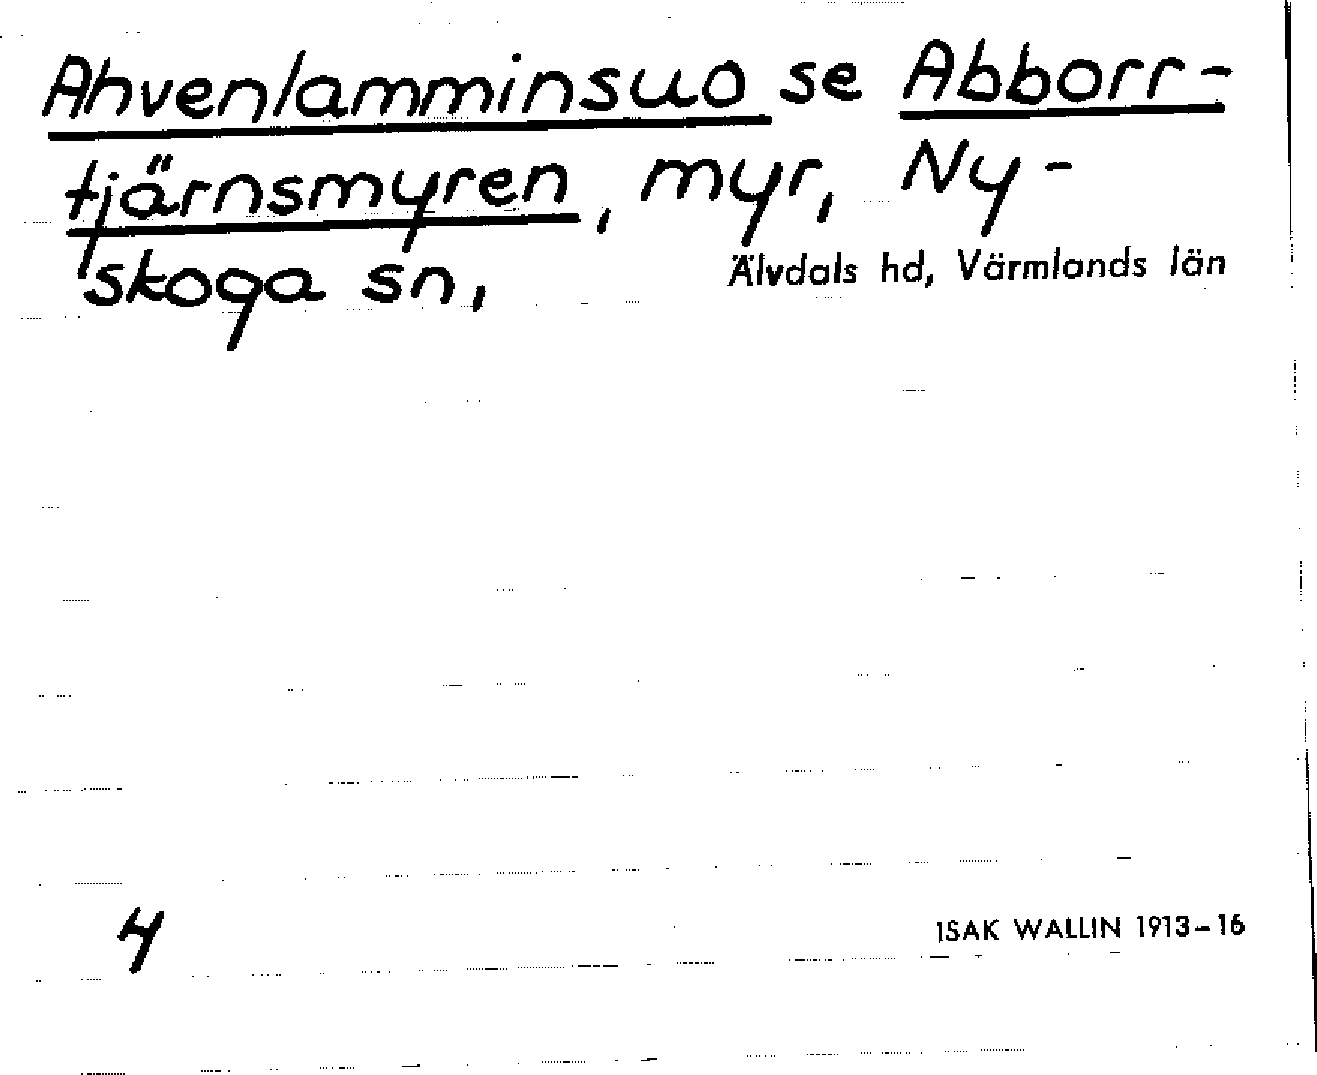 Ahvenlamminsuo se Abborr-
tjärnsmyren, myr, Ny-
skoga sn, Älvdals hd, Värmlands län
4 ISAK WALLIN 1913-16